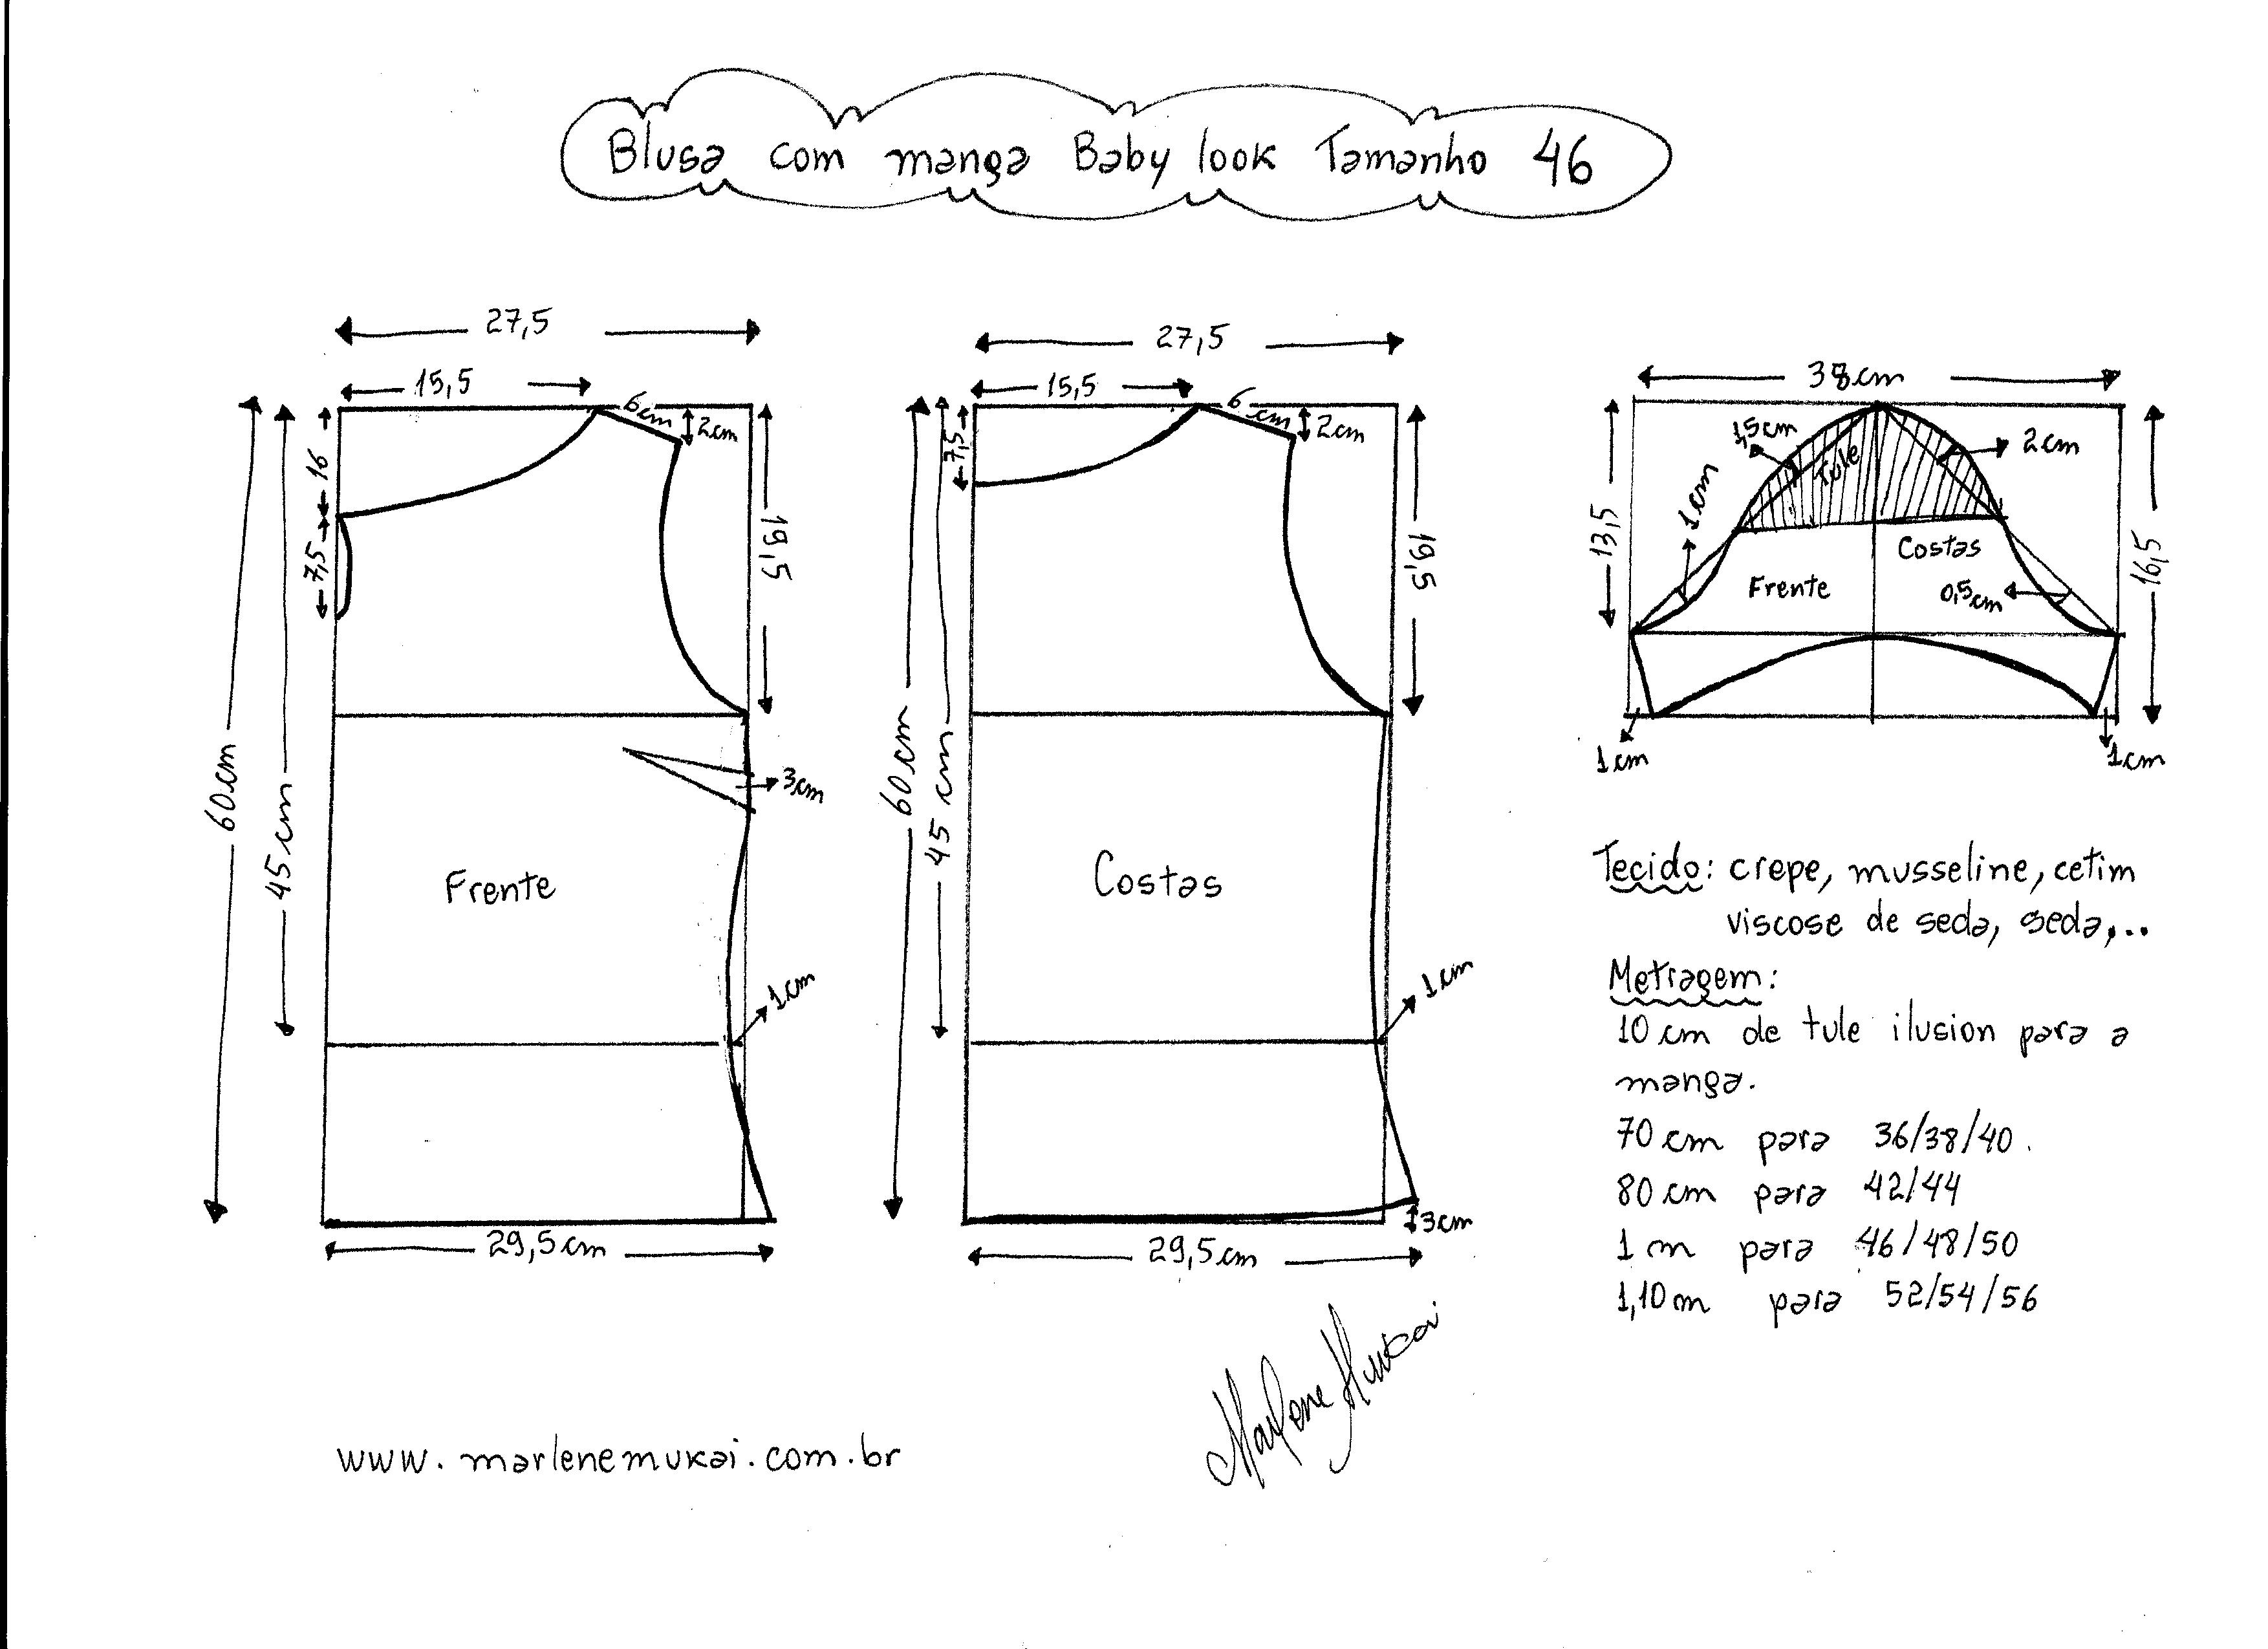 Blusa com manga Baby look Tamanho 46
27,5
15,5
6cm
2cm
16
7,5
19,5
60cm
45cm
3cm
Frente
1cm
29,5cm
27,5
15,5
6cm
2cm
7,5
19,5
60cm
45cm
Costas
1cm
3cm
29,5cm
38cm
1,5cm
Tule
2cm
1cm
13,5
Costas
Frente
0,5cm
16,5
1cm
1cm
Tecido: crepe, musseline, cetim
viscose de seda, seda,...
Metragem:
10 cm de tule ilusion para a
manga.
70 cm para 36/38/40.
80 cm para 42/44
1 m para 46/48/50
1,10m para 52/54/56
Marlene Mukai
www.marlenemukai.com.br